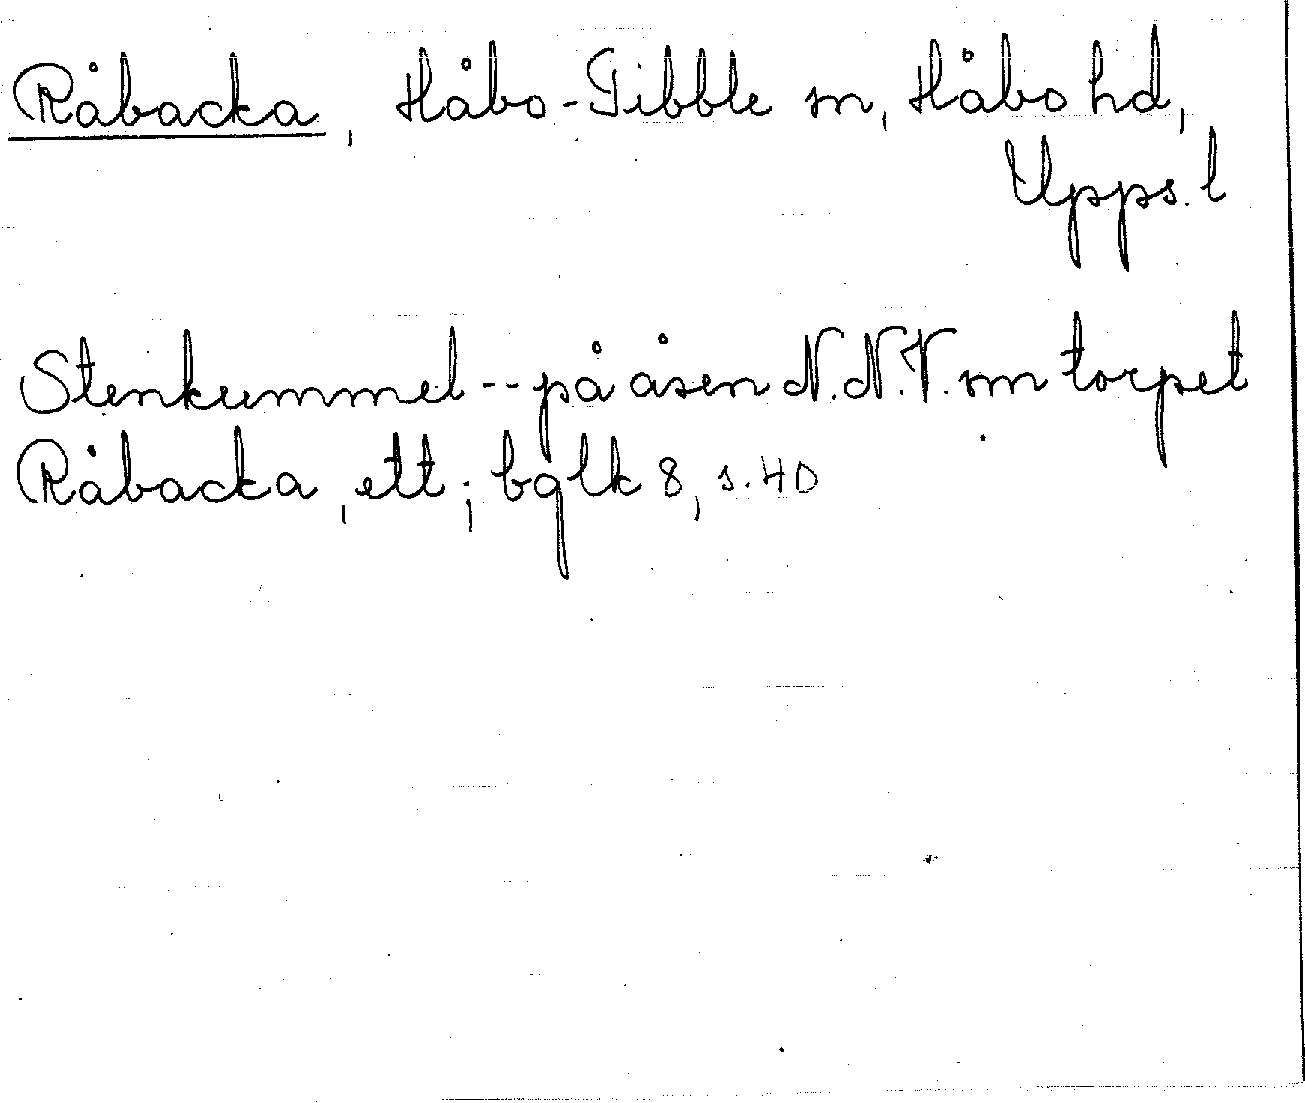 Råbacka, Håbo-Tibble sn, Håbo hd,
Upps. l
Stenkummel -- på åsen N.N.V. om torpet
Råbacka, ett; bglk 8, s. 40